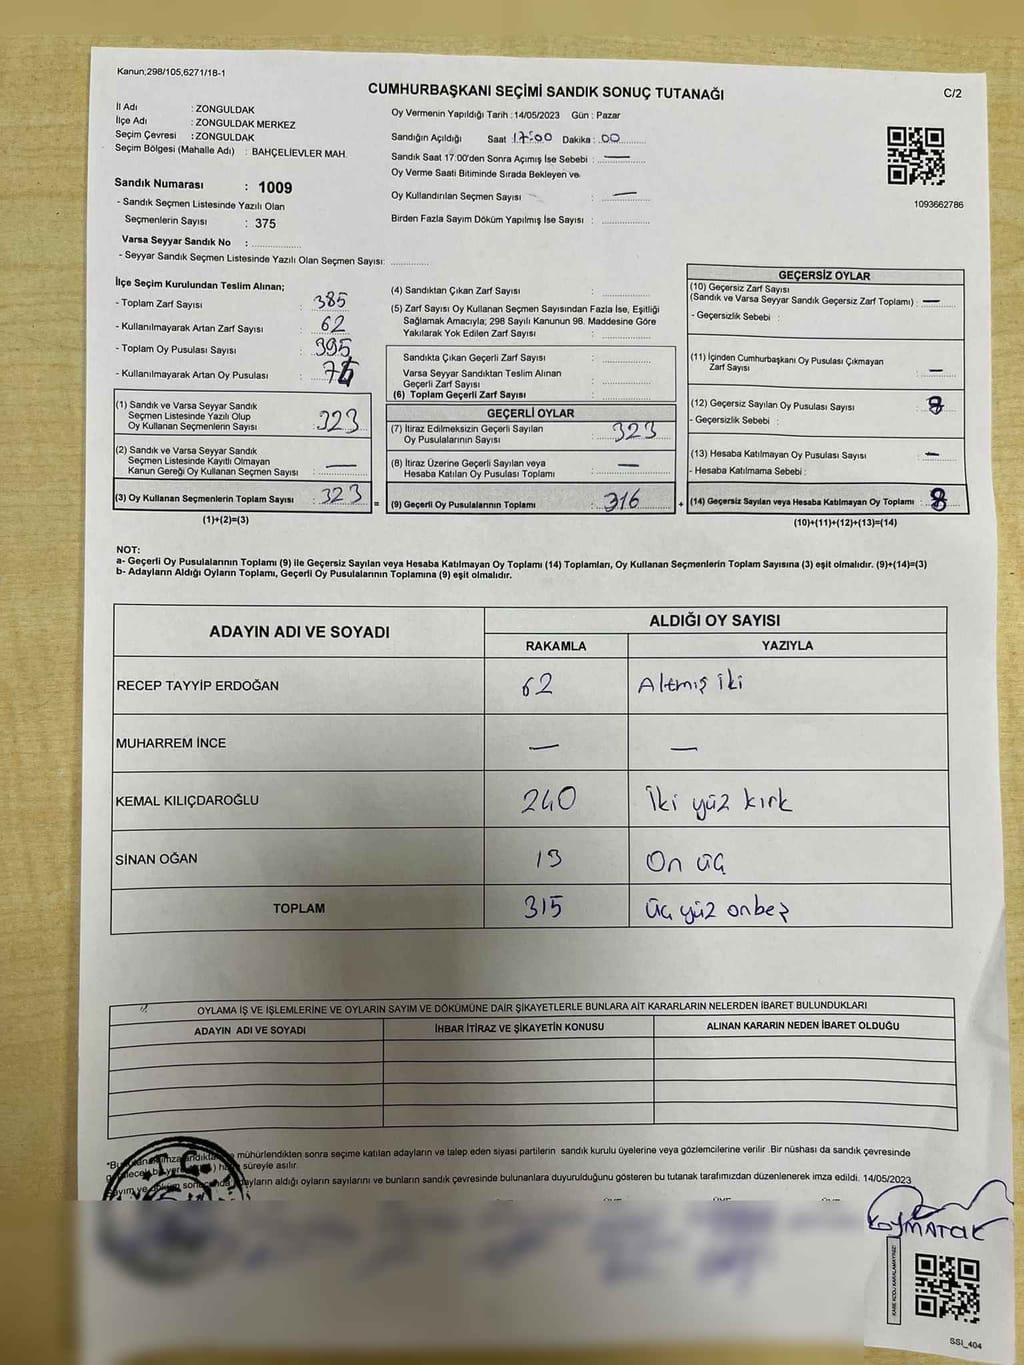 Kanun;298/105,6271/18-1
CUMHURBAŞKANI SEÇİMİ SANDIK SONUÇ TUTANAĞI
C/2
İl Adı : ZONGULDAK
İlçe Adı : ZONGULDAK MERKEZ
Seçim Çevresi : ZONGULDAK
Seçim Bölgesi (Mahalle Adı) : BAHÇELİEVLER MAH.
Oy Vermenin Yapıldığı Tarih : 14/05/2023 Gün : Pazar
Sandığın Açıldığı Saat 17:00 Dakika : 00
Sandık Saat 17:00'den Sonra Açımış İse Sebebi : —
Oy Verme Saati Bitiminde Sırada Bekleyen ve
Oy Kullandırılan Seçmen Sayısı : —
Birden Fazla Sayım Döküm Yapılmış İse Sayısı :
1093662786
Sandık Numarası : 1009
- Sandık Seçmen Listesinde Yazılı Olan
Seçmenlerin Sayısı : 375
Varsa Seyyar Sandık No :
- Seyyar Sandık Seçmen Listesinde Yazılı Olan Seçmen Sayısı:
İlçe Seçim Kurulundan Teslim Alınan;
- Toplam Zarf Sayısı : 385
- Kullanılmayarak Artan Zarf Sayısı : 62
- Toplam Oy Pusulası Sayısı : 395
- Kullanılmayarak Artan Oy Pusulası :
(1) Sandık ve Varsa Seyyar Sandık
Seçmen Listesinde Yazılı Olup
Oy Kullanan Seçmenlerin Sayısı : 323
(2) Sandık ve Varsa Seyyar Sandık
Seçmen Listesinde Kayıtlı Olmayan
Kanun Gereği Oy Kullanan Seçmen Sayısı : —
(3) Oy Kullanan Seçmenlerin Toplam Sayısı : 323 =
(1)+(2)=(3)
(4) Sandıktan Çıkan Zarf Sayısı :
(5) Zarf Sayısı Oy Kullanan Seçmen Sayısından Fazla İse, Eşitliği
Sağlamak Amacıyla; 298 Sayılı Kanunun 98. Maddesine Göre
Yakılarak Yok Edilen Zarf Sayısı :
Sandıkta Çıkan Geçerli Zarf Sayısı :
Varsa Seyyar Sandıktan Teslim Alınan
Geçerli Zarf Sayısı :
(6) Toplam Geçerli Zarf Sayısı :
GEÇERLİ OYLAR
(7) İtiraz Edilmeksizin Geçerli Sayılan
Oy Pusulalarının Sayısı : 323
(8) İtiraz Üzerine Geçerli Sayılan veya
Hesaba Katılan Oy Pusulası Toplamı : —
(9) Geçerli Oy Pusulalarının Toplamı : 316 +
GEÇERSİZ OYLAR
(10) Geçersiz Zarf Sayısı
(Sandık ve Varsa Seyyar Sandık Geçersiz Zarf Toplamı) : —
- Geçersizlik Sebebi :
(11) İçinden Cumhurbaşkanı Oy Pusulası Çıkmayan
Zarf Sayısı : —
(12) Geçersiz Sayılan Oy Pusulası Sayısı : 8
- Geçersizlik Sebebi :
(13) Hesaba Katılmayan Oy Pusulası Sayısı : —
- Hesaba Katılmama Sebebi :
(14) Geçersiz Sayılan veya Hesaba Katılmayan Oy Toplamı : 8
(10)+(11)+(12)+(13)=(14)
NOT:
a- Geçerli Oy Pusulalarının Toplamı (9) ile Geçersiz Sayılan veya Hesaba Katılmayan Oy Toplamı (14) Toplamları, Oy Kullanan Seçmenlerin Toplam Sayısına (3) eşit olmalıdır. (9)+(14)=(3)
b- Adayların Aldığı Oyların Toplamı, Geçerli Oy Pusulalarının Toplamına (9) eşit olmalıdır.
ADAYIN ADI VE SOYADI
ALDIĞI OY SAYISI
RAKAMLA YAZIYLA
RECEP TAYYİP ERDOĞAN 62 Altmış iki
MUHARREM İNCE — —
KEMAL KILIÇDAROĞLU 240 İki yüz kırk
SİNAN OĞAN 13 On üç
TOPLAM 315 üç yüz onbeş
OYLAMA İŞ VE İŞLEMLERİNE VE OYLARIN SAYIM VE DÖKÜMÜNE DAİR ŞİKAYETLERLE BUNLARA AİT KARARLARIN NELERDEN İBARET BULUNDUKLARI
ADAYIN ADI VE SOYADI İHBAR İTİRAZ VE ŞİKAYETİN KONUSU ALINAN KARARIN NEDEN İBARET OLDUĞU
mühürlendikten sonra seçime katılan adayların ve talep eden siyasi partilerin sandık kurulu üyelerine veya gözlemcilerine verilir .Bir nüshası da sandık çevresinde
süreyle asılır.
adayların aldığı oyların sayılarını ve bunların sandık çevresinde bulunanlara duyurulduğunu gösteren bu tutanak tarafımızdan düzenlenerek imza edildi. 14/05/2023
T.C.
KAREKODU KARALAMAYINIZ!
SSI_404